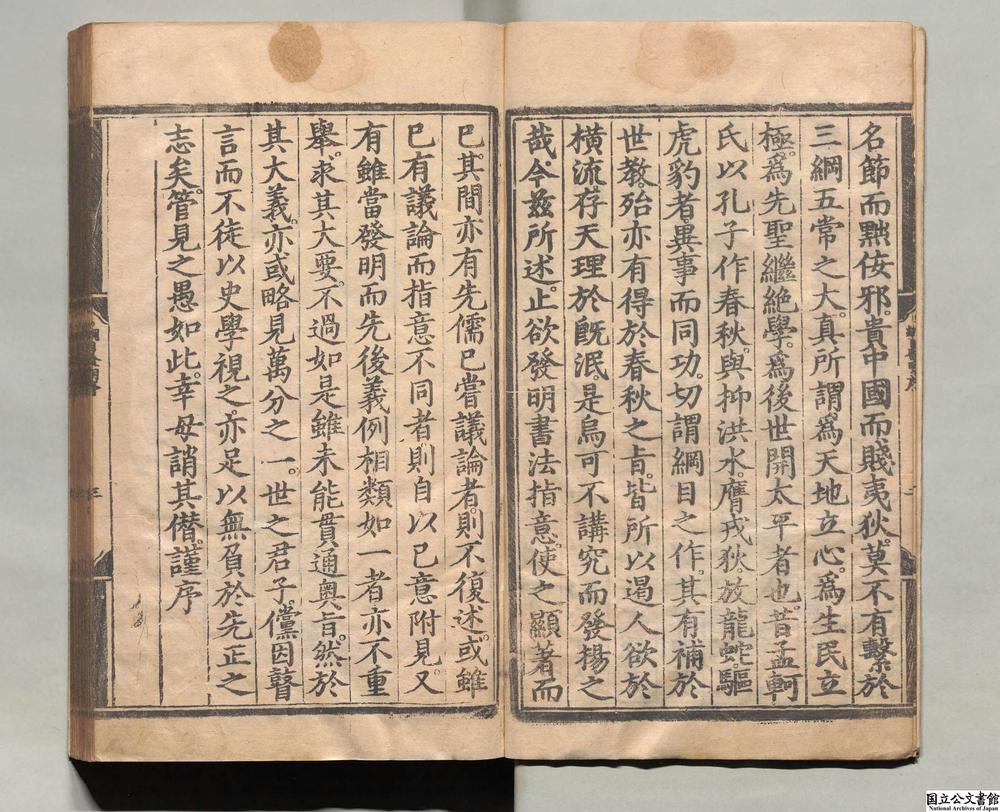 名節而黜佞邪。貴中國而賤夷狄。莫不有繫於
三綱五常之大。真所謂爲天地立心。爲生民立
極。爲先聖繼絶學。爲後世開太平者也。昔孟軻
氏以孔子作春秋。與抑洪水。膺戎狄。放龍蛇。驅
虎豹者。異事而同功。切謂綱目之作。其有補於
世教。殆亦有得於春秋之旨。皆所以遏人欲於
橫流。存天理於旣泯。是烏可不講究而發揚之
哉今玆所述。止欲發明書法指意。使之顯著而
已。其間亦有先儒已嘗議論者。則不復述。或雖
已有議論而指意不同者。則自以已意附見。又
有雖當發明而先後義例相類如一者亦不重
舉。求其大要。不過如是雖未能貫通奧旨。然於
其大義。亦或略見萬分之一。世之君子。儻因瞽
言而不徒以史學視之。亦足以無負於先正之
志矣。管見之愚如此。幸毋誚其僭。謹序
三
国立公文書館
National Archives of Japan